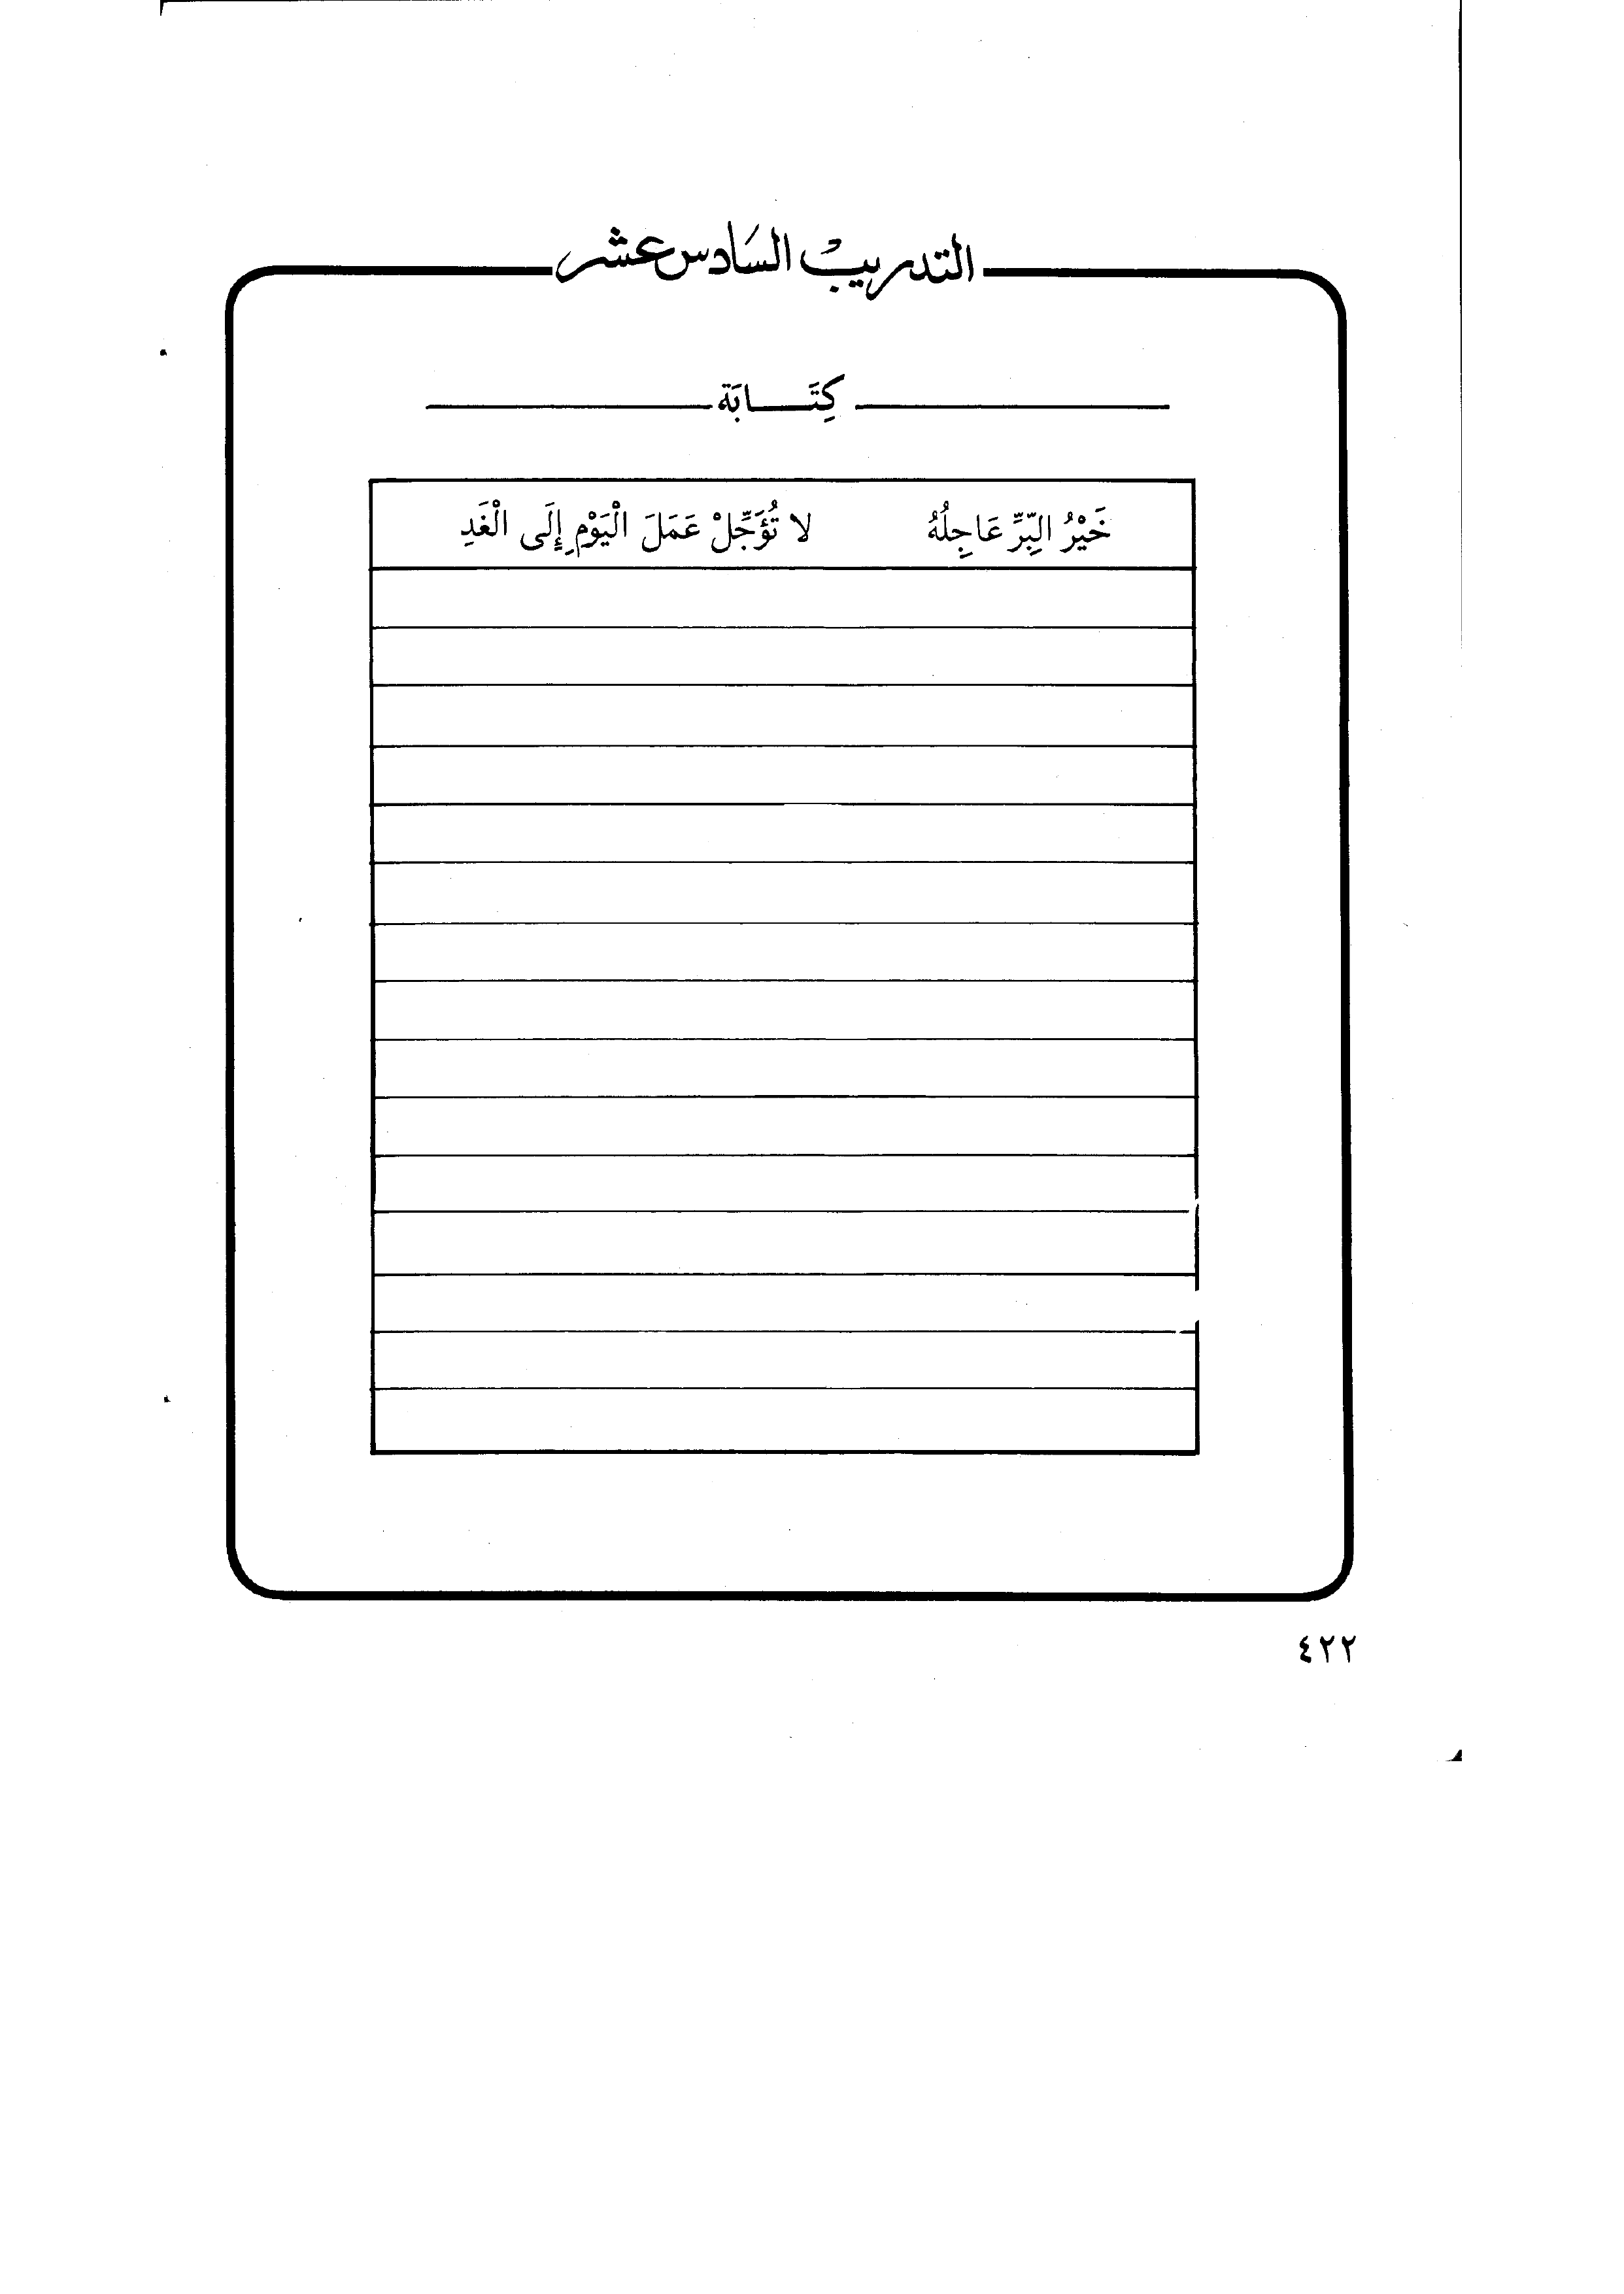 التدريبْ السَادس عشر
كِتَـــــابَة
خَيْرُ البِرِّ عَاجِلُهُ لا تُؤَجِّلْ عَمَلَ الْيَوْمِ إِلَى الْغَدِ
٤٢٢